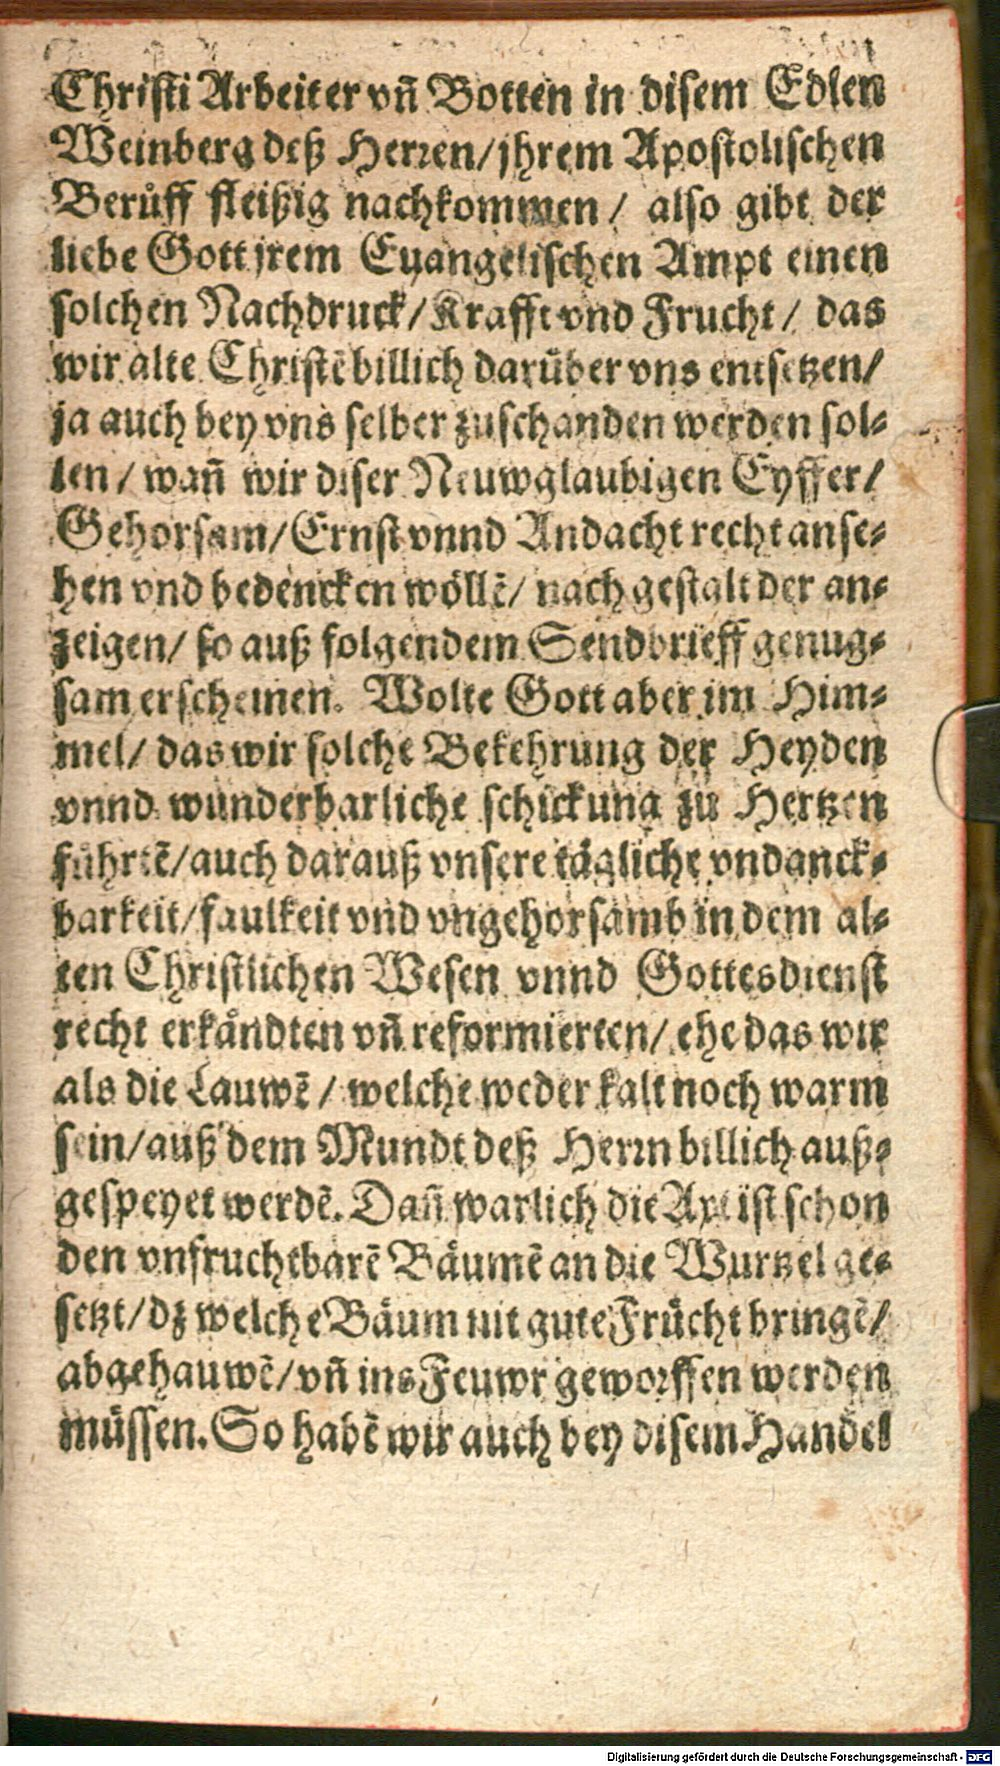 Christi Arbeiter vñ Botten in disem Edlen
Weinberg deß Herren/ jhrem Apostolischen
Berůff fleißig nachkommen / also gibt der
liebe Gott jrem Euangelischen Ampt einen
solchen Nachdruck/ Krafft vnd Frucht / das
wir alte Christẽ billich darüber vns entsetzen/
ja auch bey vns selber zuschanden werden sol-
len / wañ wir diser Neuwglaubigen Eyffer/
Gehorsam/ Ernst vnnd Andacht recht anse-
hen vnd bedencken wöllẽ/ nach gestalt der an-
zeigen/ so auß folgendem Sendbrieff genug-
sam erscheinen. Wolte Gott aber im Him-
mel/ das wir solche Bekehrung der Heyden
vnnd wunderbarliche schickung zů Hertzen
führtẽ/ auch darauß vnsere tägliche vndanck-
barkeit/ faulkeit vnd vngehorsamb in dem al-
ten Christlichen Wesen vnnd Gottesdienst
recht erkåndten vñ reformierten/ ehe das wir
als die Lauwẽ / welche weder kalt noch warm
sein/ auß dem Mundt deß Herrn billich auß-
gespeyet werdẽ. Dañ warlich die Axt ist schon
den vnfruchtbarẽ Bäumẽ an die Wurtzel ge-
setzt/ dz welche Bäum nit gute Frücht bringẽ/
abgehauwẽ/ vñ ins Feuwr geworffen werden
müssen. So habẽ wir auch bey disem Handel
Digitalisierung gefördert durch die Deutsche Forschungsgemeinschaft - DFG